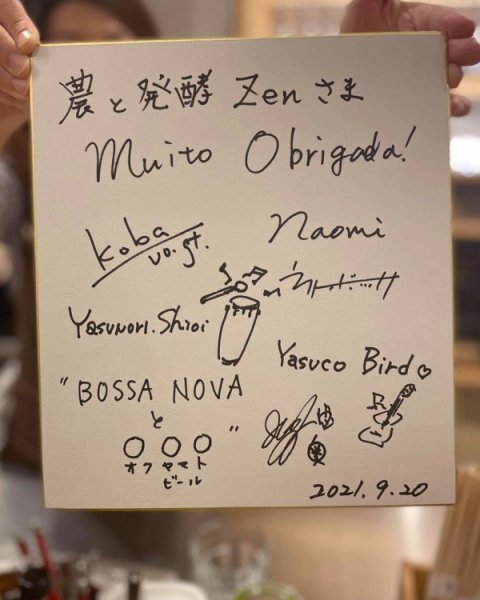 農と発酵 Zenさま
Muito Obrigada!
Koba
vo.gt.
Naomi
Yasunori.Shioi
Yasuco Bird♡
"BOSSA NOVA
と
○○○"
オフ ヤマト
ビール
2021.9.20